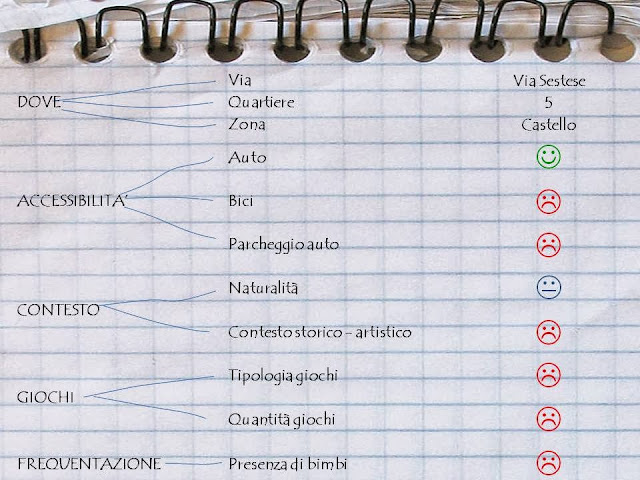 Via Via Sestese
DOVE Quartiere 5
Zona Castello
Auto
ACCESSIBILITA' Bici
Parcheggio auto
Naturalità
CONTESTO
Contesto storico - artistico
Tipologia giochi
GIOCHI
Quantità giochi
FREQUENTAZIONE Presenza di bimbi